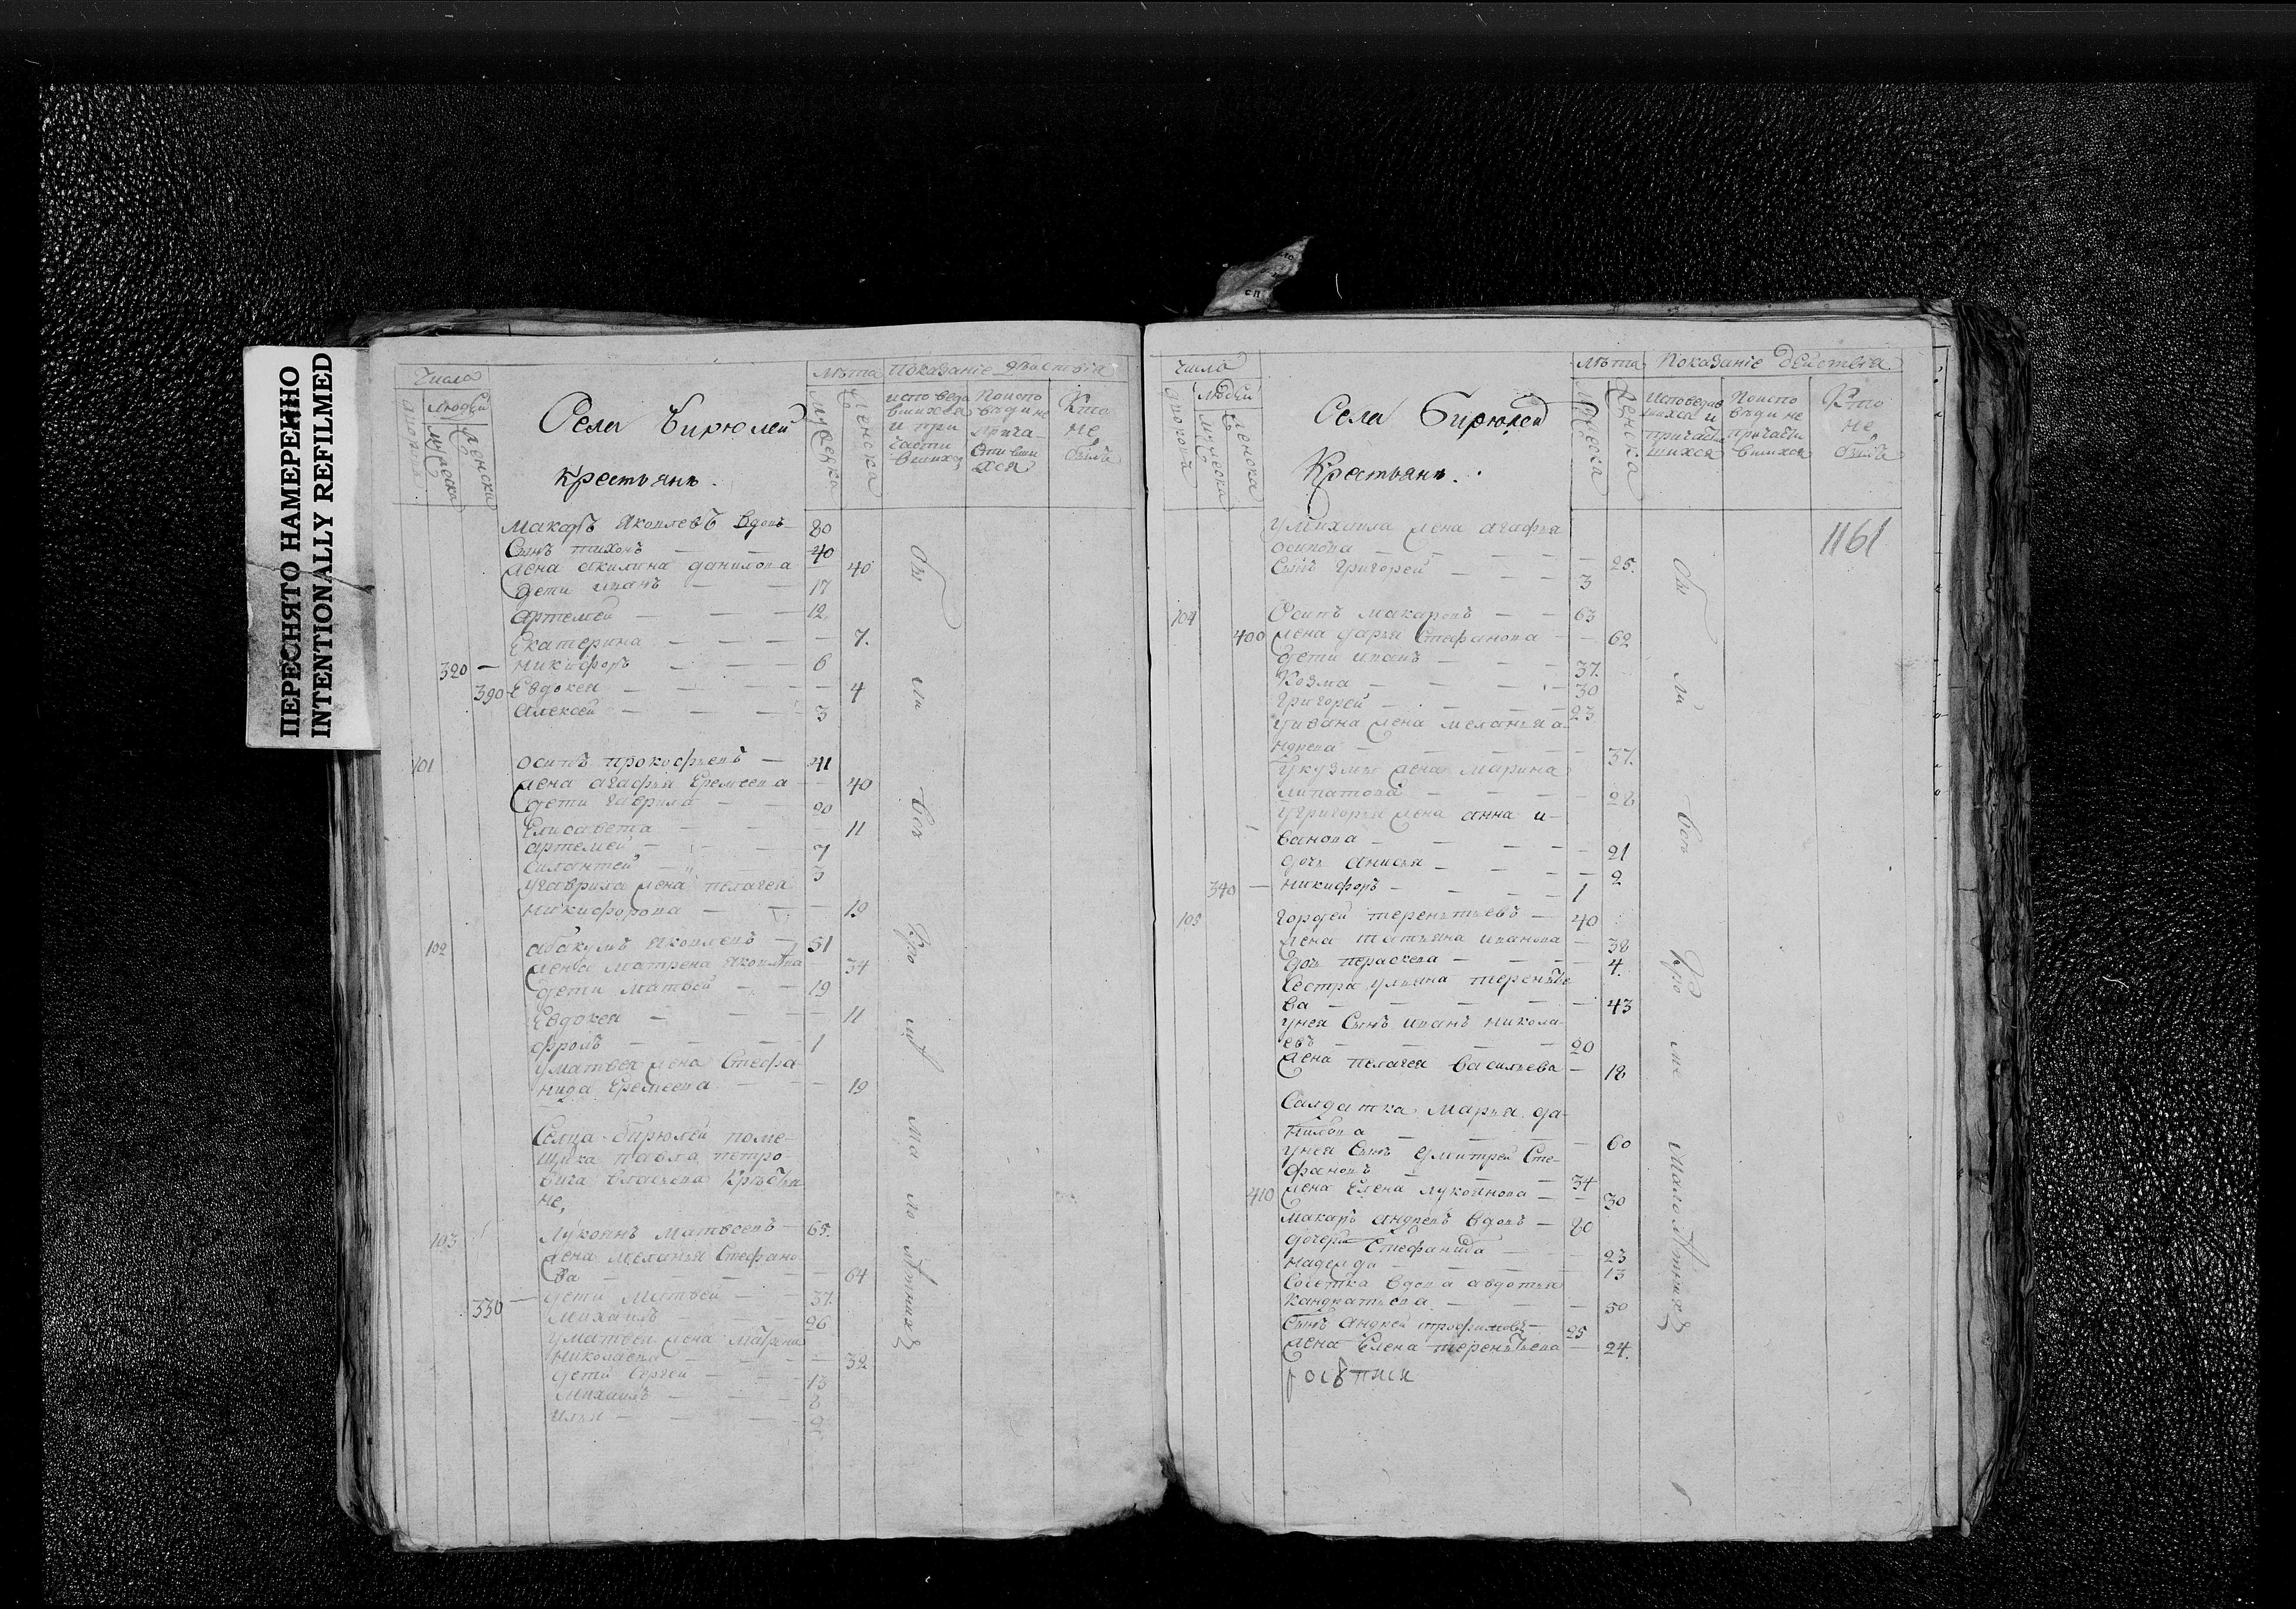 ПЕРЕСНЯТО НАМЕРЕННО
INTENTIONALLY REFILMED
Числа
людей
мужеска
женска
Села Бирюлей
крестьянъ.
лѣта
мужеска
женска
Показаніе дѣиствія
исповеда
вшихся
и при
части
вшихся
Поиспо
вѣди не
прича-
стивши
хся
Кто
не
былъ
Макаръ Яковлевъ вдовъ 80
Сынъ тихонъ — — 40
жена акилина данилова — 40
дети иванъ — — 17
артемей — — — 12
Екатерина — — — — 7.
320 — никифоръ — — — 6
390 Евдокея — — — — 4
Алексей — — — 3
101 осипъ прокофьевъ — 41
жена агафья Еремеева — 40
дети гаврила — — 20
Елисавета — — — 11
артемей — — 7
Силантей — 3
угаврила жена пелагея
никифорова — — — 19
102 абакумъ яковлевъ — 51
жена матрена яковлева 34
дети матвей — — 19
Евдокея — — — — 11
фролъ — — — 1
уматвея жена Стефа
нида Еремеева — — 19
Селца бирюлей поме-
щика павла петро-
вича Кръстья
не,
103 Лукоянъ матвеевъ — 65.
жена меланья Стефано
ва — — — — 64
330 — дети матвей — — 37.
михаилъ — — — 26
уматвея жена матрена
николаева — — — 32
дети Сергей — — 13
михаилъ — — 8
илья — — —
Бы
ли
всѣ
Кро
мѣ
ма
ло
лѣтнихъ
Числа
людей
дворовъ
мужеска
женска
Села Бирюлей
Крестьянъ.
лѣта
мужеска
женска
Показаніе действія.
Исповедав
шихся и
причасти
шихся
Поиспо
вѣди не
причасти
вшихся
Кто
не
былъ
1161
умихаила жена агафья
осипова — — — — 25.
Сынъ григорей — — — 3
104 Осипъ макаровъ — — 63
400 жена дарья Стефанова — — 62
дети иванъ — — — 37.
Козма — — — 30
Григорей — — — — 23
уивана жена меланья а-
ндреева — — — — 37.
укузмы жена марина
липатова — — — — 28
угригорья жена анна и-
ванова — — — — — 21
дочь анисья — — — — 2
340 — никифоръ — — — — 1
105 гордей терентьевъ — 40
жена татьяна иванова — 38
дочь параскева — — — 4.
Сестра ульяна терентье
ва — — — — — 43
унея Сынъ иванъ никола-
евъ — — — — 20
жена пелагея васильева — 18
Салдатка марья да-
нилова — — — — 60
унея Сынъ дмитрей Сте-
фановъ — — — 34
410 жена Елена лукоянова — — 30
макаръ андреевъ вдовъ — 80
дочери Стефанида — — 23
надежда — — — — 13
вдова авдотья
Кандратьева — — — 50
Сынъ андрей трофимовъ — 25
жена Елена терентьева — 24.
Бы
ли
всѣ
Кро
ме
малолѣтнихъ